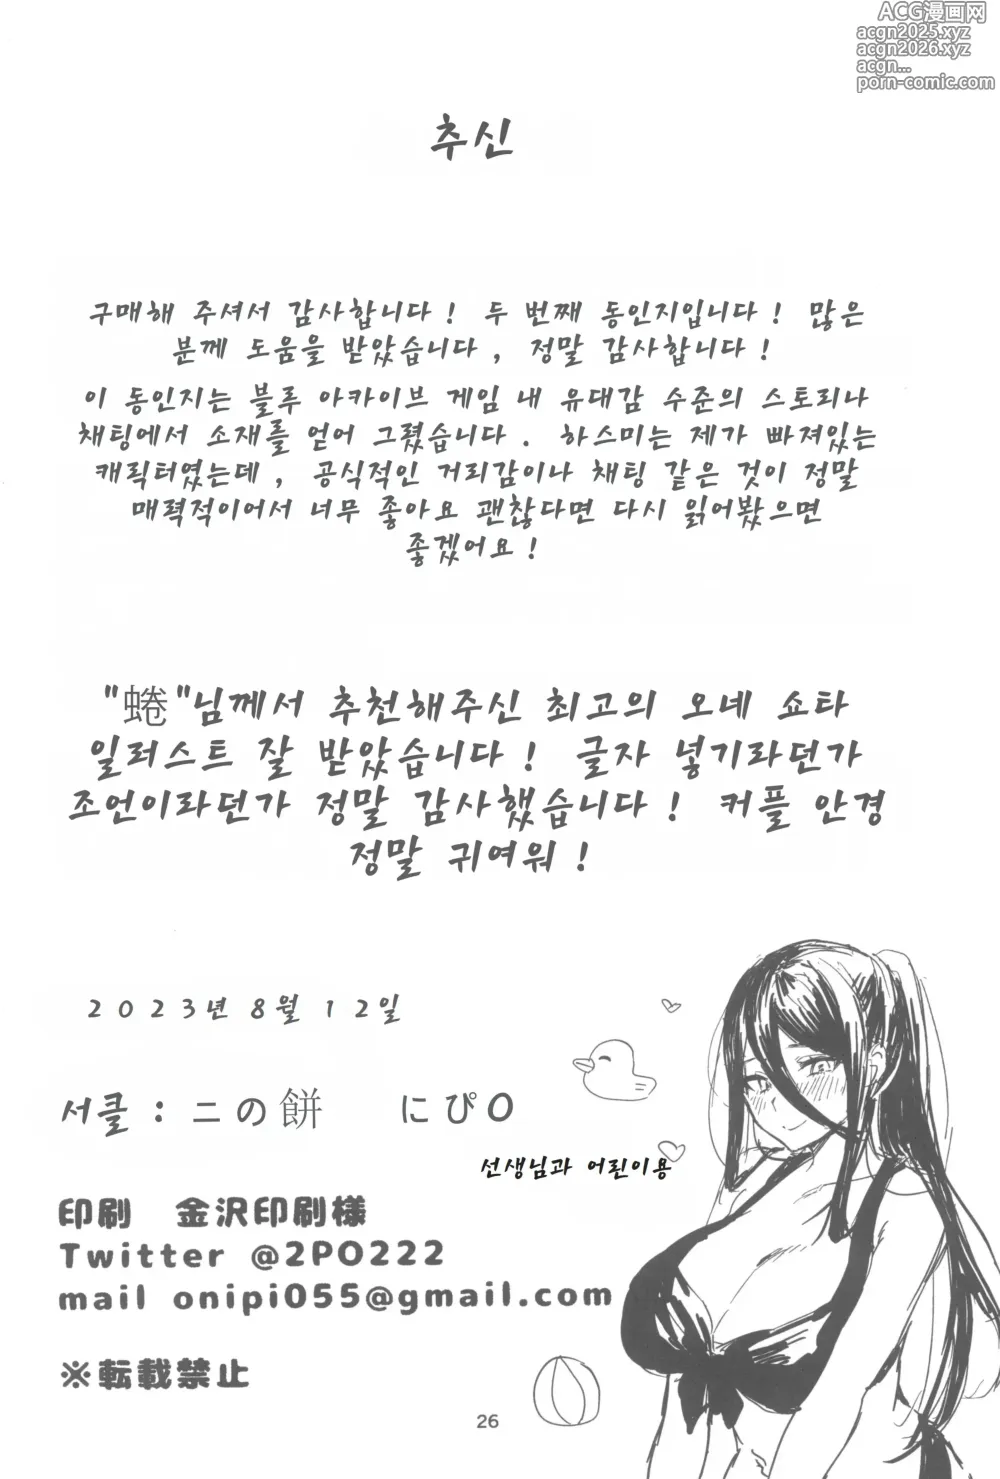 ACG漫画网
acgn2025.xyz
acgn2026.xyz
acgn...
porn-comic.com
추신
구매해 주셔서 감사합니다! 두 번째 동인지입니다! 많은
분께 도움을 받았습니다, 정말 감사합니다!
이 동인지는 블루 아카이브 게임 내 유대감 수준의 스토리나
채팅에서 소재를 얻어 그렸습니다. 하스미는 제가 빠져있는
캐릭터였는데, 공식적인 거리감이나 채팅 같은 것이 정말
매력적이어서 너무 좋아요 괜찮다면 다시 읽어봤으면
좋겠어요!
"蜷"님께서 추천해주신 최고의 오네 쇼타
일러스트 잘 받았습니다! 글자 넣기라던가
조언이라던가 정말 감사했습니다! 커플 안경
정말 귀여워!
2023년 8월 12일
서클 : ニの餅 にぴO
선생님과 어린이용
印刷 金沢印刷様
Twitter @2PO222
mail onipi055@gmail.com
※転載禁止
26